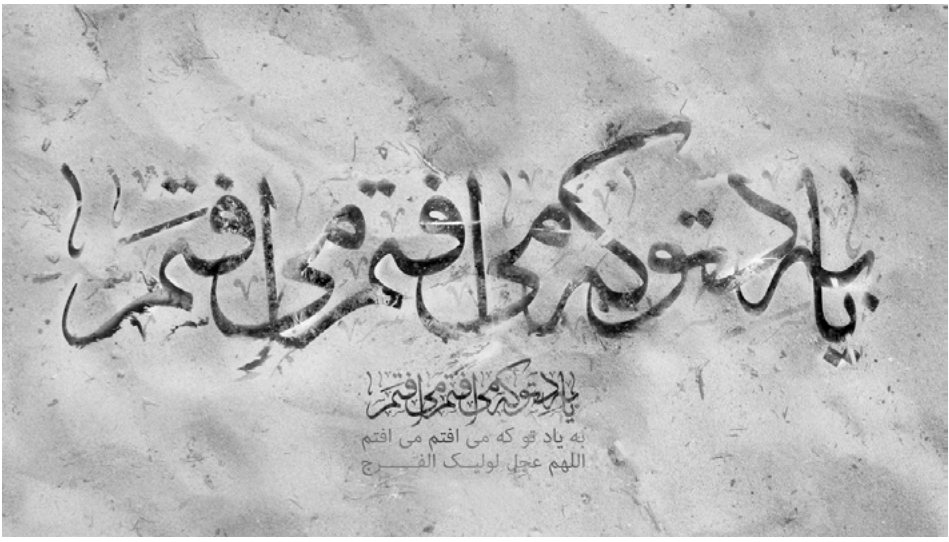 به یاد تو که می افتم می افتم
به یاد تو که می افتم می افتم
به یاد تو که می افتم می افتم
اللهم عجل لولیک الفرج